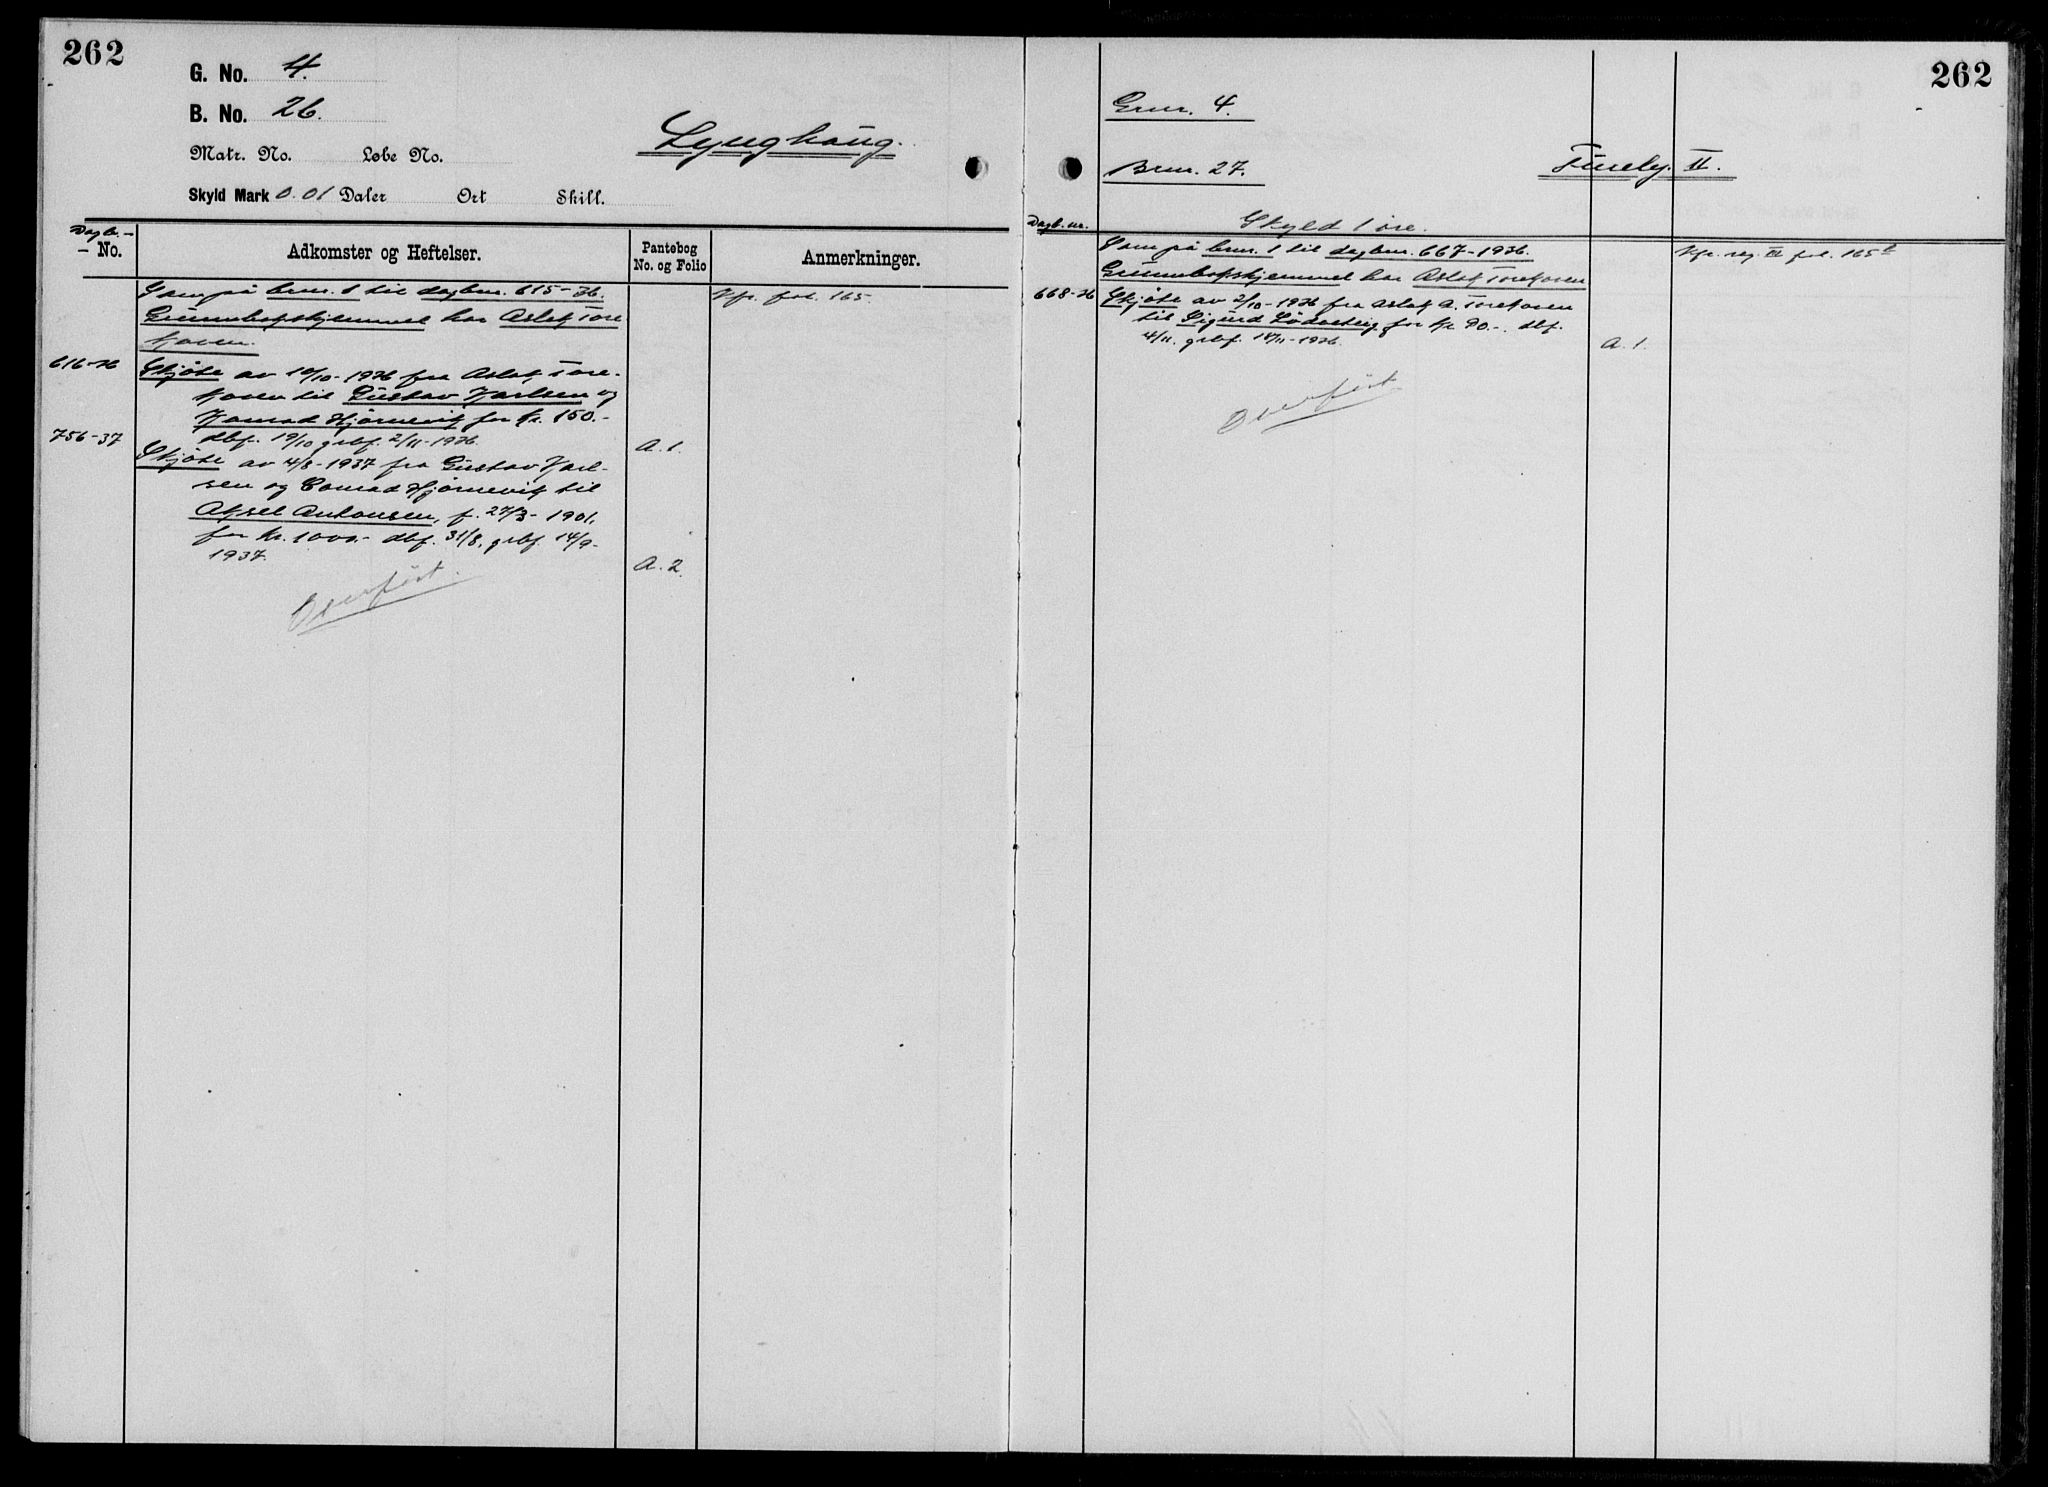 262
G. No. 4.
B. No. 26.
Matr. No. Løbe No.
Lynghaug.
Skyld Mark 0.01 Daler Ort Skill.
Dagb.-
- No.
Adkomster og Heftelser.
Pantebog
No. og Folio
Anmerkninger.
Som på brnr. 1 til dagbnr. 615-36.
Kfr. fol. 165.
Grunnbokshjemmel har Aslak Tore
kåsen.
616-36
Skjøte av 10/10-1936 fra Aslak Tore-
kåsen til Gustav Karlsen og
Konrad Hjørnevik for kr. 150.-
dbf. 19/10 grbf. 2/11-1936.
A. 1.
756-37
Skjøte av 4/8-1937 fra Gustav Karl-
sen og Conrad Hjørnevik til
Aksel Antonsen, f. 27/3-1901,
for kr. 1000.- dbf. 31/8, grbf. 14/9-
1937.
A. 2.
Overført.
262
Gnr. 4.
Brnr. 27.
II.
Dagb. nr.
Skyld 1 øre.
Som på brnr. 1 til dagbnr. 667-1936.
Kfr. reg. III fol. 165 b
Grunnbokshjemmel har Aslak Torekåsen
668-36
Skjøte av 2/10-1936 fra Aslak A. Torekåsen
til Sigurd for kr 90.-. dbf.
4/11. grbf. 14/11-1936.
A. 1.
Overført